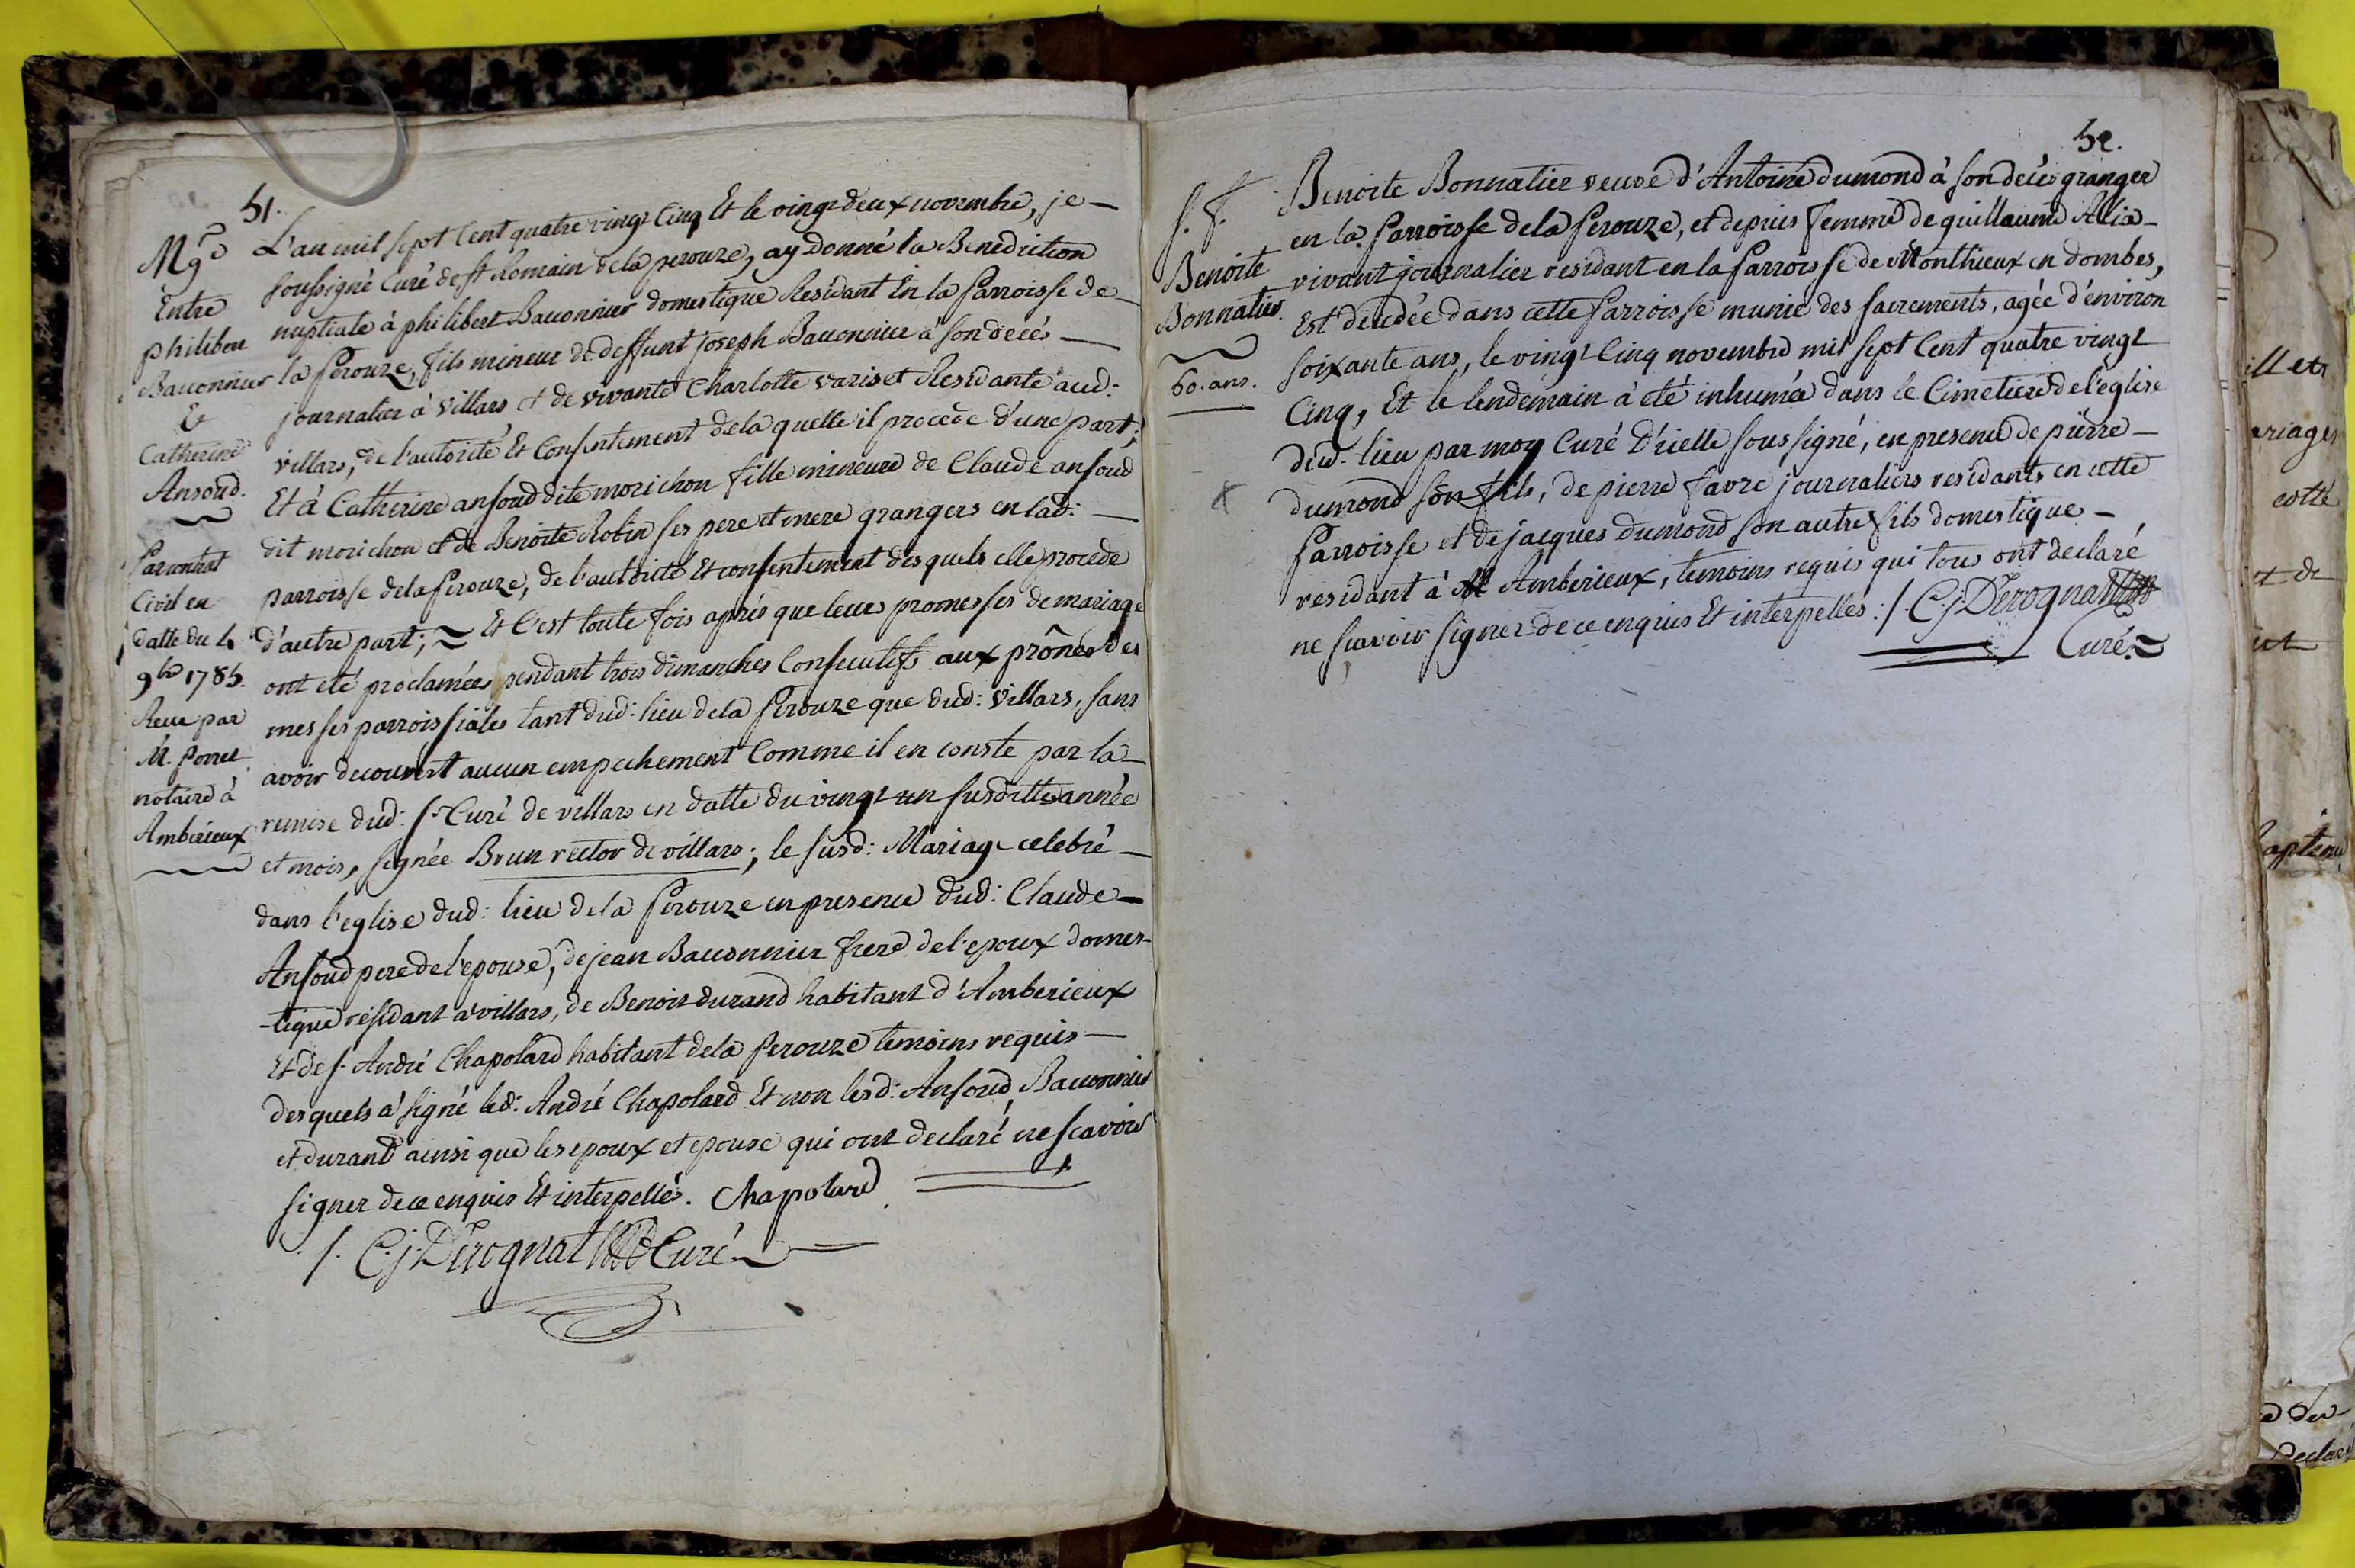 51.
Mge
Entre
philibert
Bauonnier
&
Catherine
Ansoud.
Par contrat
Civil en
datte du 4
9bre 1785.
Recu par
M. Porret
notaire à
Ambérieux
L'an mil sept Cent quatre vingt Cinq Et le vingt deux novembre, je
soussigné Curé de St Romain de la perouze, ay donné la Benediction
nuptiale à philibert Bauonnier domestique Residant En la Parroisse de
la Perouze, fils mineur de deffunt joseph Bauonnier à son decés
journalier à Villars et de vivante Charlotte variset Residante aud:
villars, de l'autorité Et Consentement de la quelle il procede d'une part;
Et à Catherine ansoud dite morichon fille mineure de Claude ansoud
dit morichon et de Benoite Robin ses pere et mere grangers en lad:
parroisse de la Perouze, de l'autorité Et consentement desquels elle procede
d'autre part; Et C'est toute fois aprés que leurs promesses de mariage
ont eté proclamées pendant trois dimanches Consecutifs aux prônes des
messes parroissiales tant dud: lieu de la Perouze que dud: Villars, sans
avoir decouvert aucun empechement Comme il en conste par la
remise dud: Sr Curé de villars en datte du vingt un susditte année
et mois, signée Brun rector de villars; le susd: Mariage celebré
dans l'eglise dud: lieu de la Perouze en presence dud: Claude
Ansoud pere de l'epouse, de jean Bauonnier frere de l'epoux domes-
-tique résidant à villars, de Benoit durand habitant d'Amberieux
Et de s. André Chapolard habitant de la Perouze temoins requis
desquels a signé led: André Chapolard Et non lesd: Ansoud, Bauonnier
et durand ainsi que les epoux et epouse qui ont declaré ne scavoir
signer de ce enquis Et interpellés. Chapolard
/. C. j. Derognat Curé
52.
S. F.
Benoite
Bonnatier
60. ans.
Benoite Bonnatier veuve d'Antoine dumond à son decés granger
en la Parroisse de la Perouze, et depuis femme de guillaume Alia
vivant journalier residant en la Parroisse de Monthieux en dombes,
Est decedée dans cette Parroisse munie des sacrements, agée d'environ
soixante ans, le vingt Cinq novembre mil sept Cent quatre vingt
Cinq, Et le lendemain à eté inhumée dans le Cimetiere de l'église
dud. lieu par moy Curé D'icelle sous signé, en presence de pierre
dumond son fils, de pierre favre journaliers residants en cette
Parroisse et de jacques dumond son autre fils domestique
residant à Amberieux, temoins requis qui tous ont declaré
ne scavoir signer de ce enquis Et interpellés: /. C. j. Derognat
Curé.